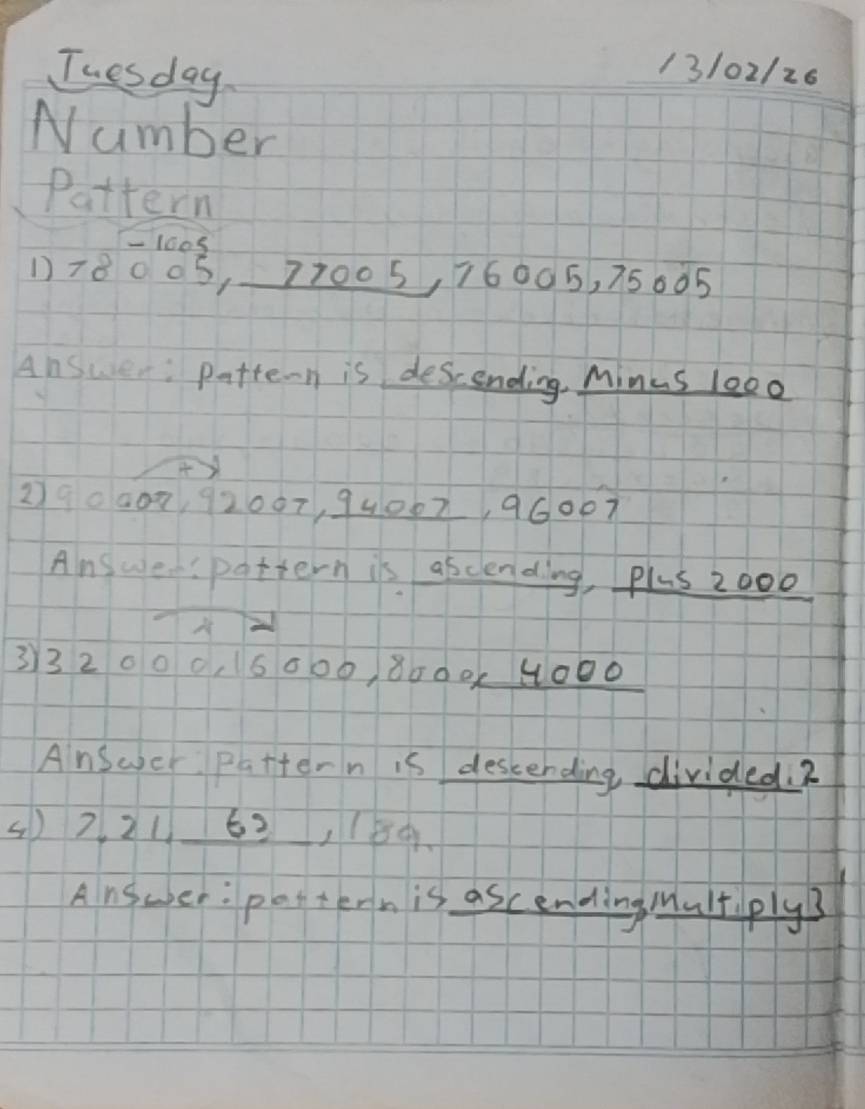 Tuesday 13/02/26
Number
Pattern
-1005
1) 78005, 77005, 76005, 75005
Answer: Pattern is descending, Minus 1000
+
2) 90007, 92007, 94007, 96007
Answer: pattern is ascending, plus 2000
3) 32000, 16000, 8000, 4000
Answer: Pattern is descending, divided: 2
4) 7, 21, 63, 189.
Answer: pattern is ascending, Multiply 3